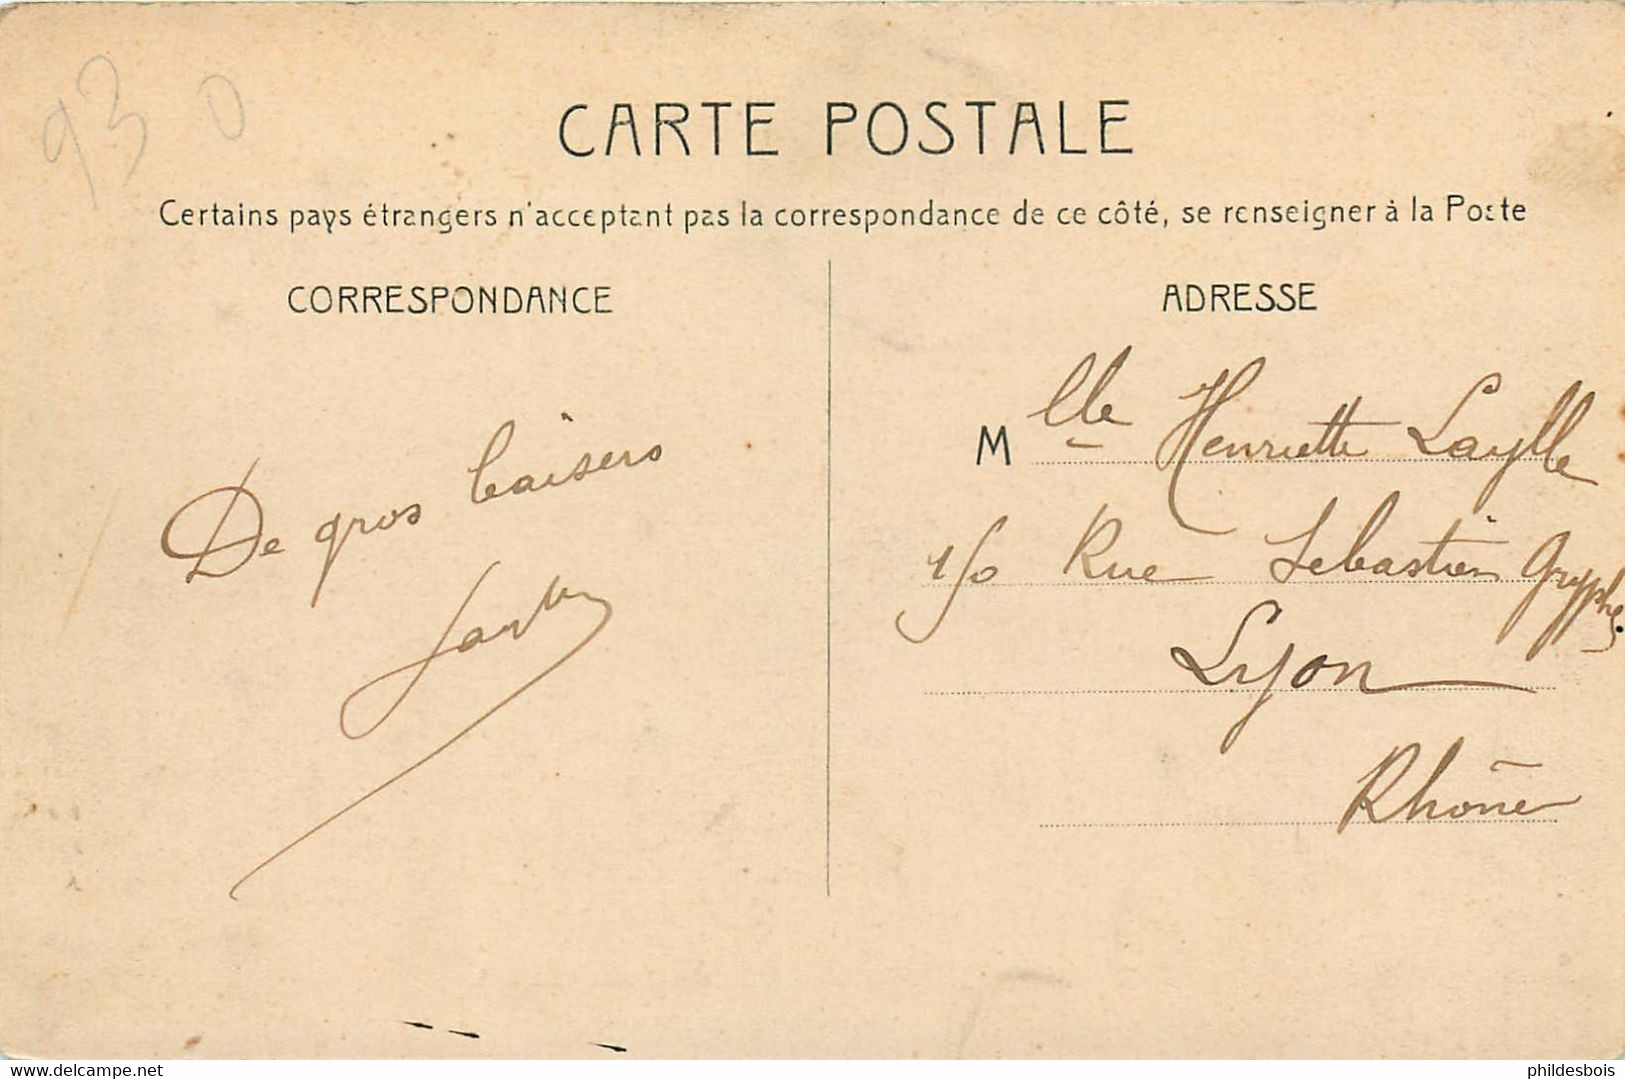 93 0
CARTE POSTALE
Certains pays étrangers n'acceptent pas la correspondance de ce côté, se renseigner à la Poste
CORRESPONDANCE
De gros baisers
ADRESSE
Mlle Henriette Laylle
Rue Sébastien Gryphe
Lyon
Rhône
www.delcampe.net
phildesbois